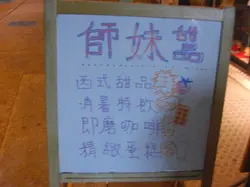 師妹甜品
西式甜品
消暑特飲
即磨咖啡
精緻蛋糕